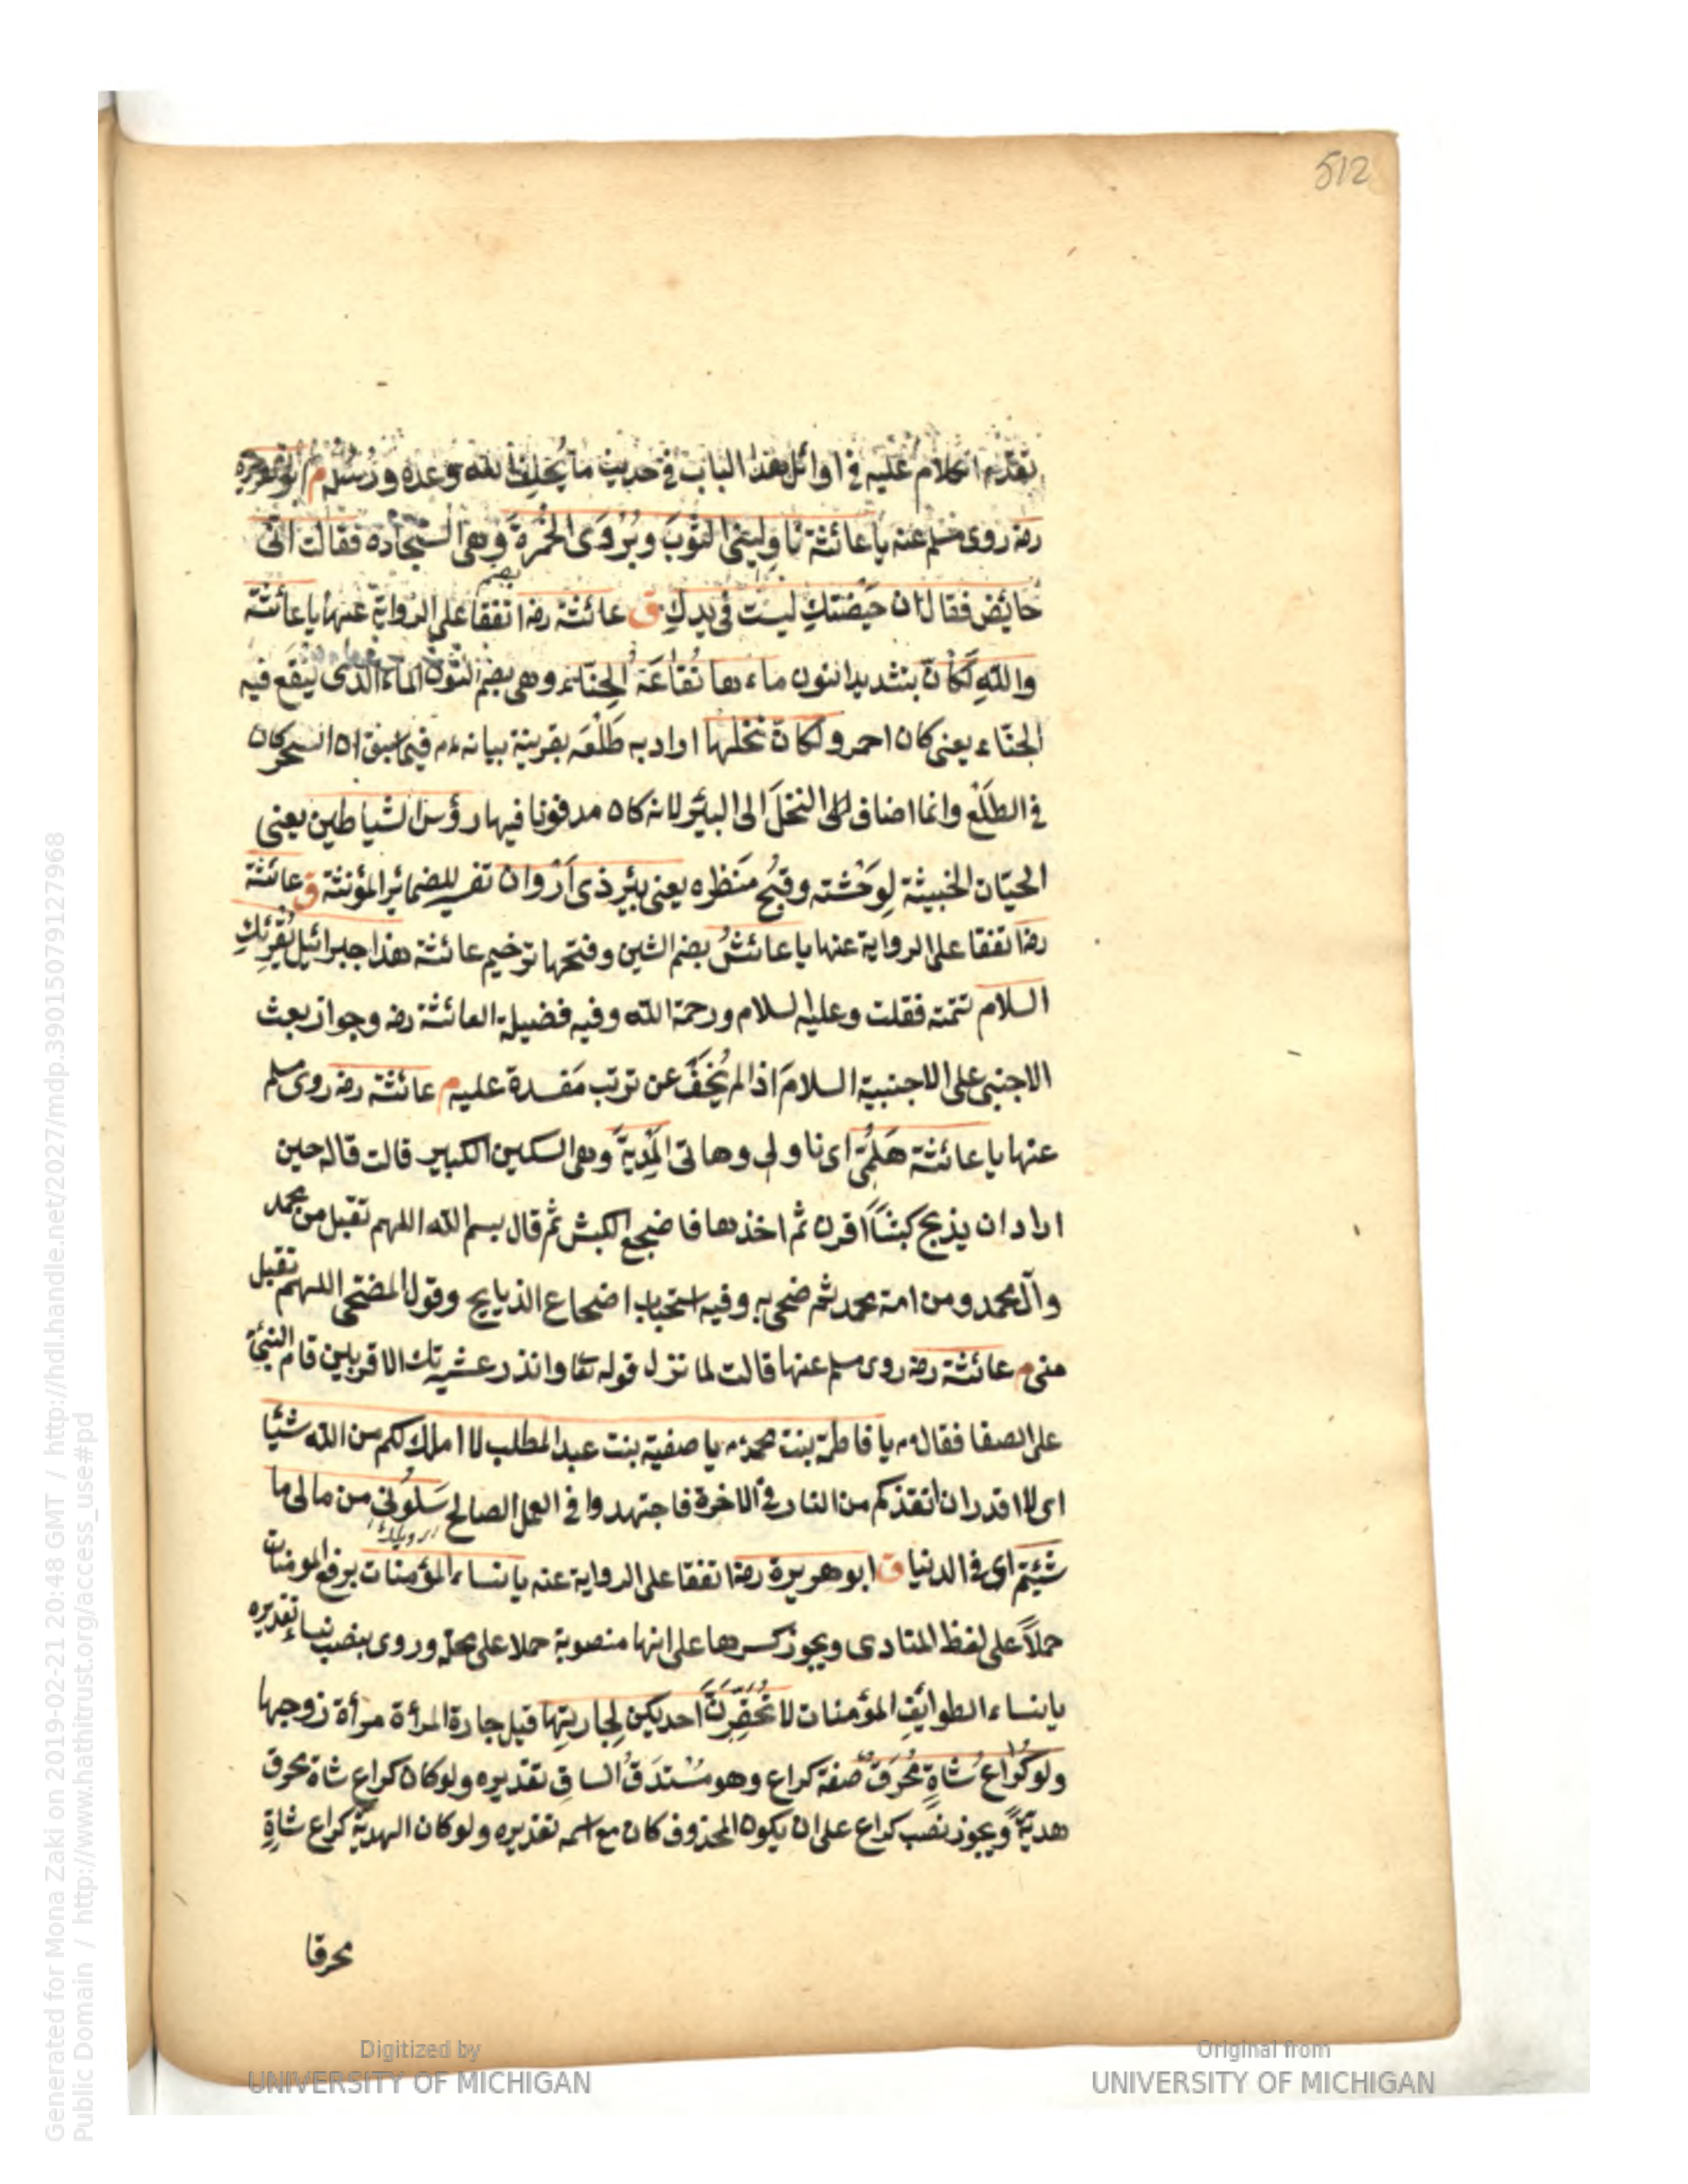 512
تقدم الكلام عليه في اوائل هذا الباب في حديث ما يخلف الله وعده ورسله م ابو هريرة
رضه روى مسلم عنه يا عائشة ناوِليني الثوبَ ويُرْوَى الخُمْرةَ وهي السجادة فقالت انى
حايض فقال ان حَيْضتكِ ليست في يدكِ ق عائشة رضه اتفقا على الرواية عنها يا عائشة
واللهِ لَكَاَنّ بتشديد النون ماءها نُقَاعَة الحِنّاء وهي بضم النون الماء الذى ينقع فيه
الحنّاء يعنى كان احمر ولكانّ نخلها اراد به طَلْعَه بقرينة بيانه عم فيما سبق ان السحر كان
في الطَلْع وانما اضاف النخلَ الى البئر لانه كان مدفونا فيها رؤس الشياطين يعنى
الحيّات الخبيثة لِوَحْشته وقبُح مَنظره يعنى بئر ذى اَرْوان تفسير للضمائر المؤنثة ق عائشة
رضه اتفقا على الرواية عنها يا عائشُ بضم الشين وفتحها ترخيم عائشة هذا جبرائيل يُقرِئكِ
السلام تتمته فقلت وعليه السلام ورحمة الله وفيه فضيلة العائشة رضه وجواز بعث
الاجنبى على الاجنبية السلامَ اذا لم يُخَفْ عن ترتب مَفسدة عليه م عائشة رضه روى مسلم
عنها يا عائشة هَلُمّى اى ناولى وهاتى المُدْيةَ وهى السكين الكبير قالت قاله حين
اراد ان يذبح كبشاً اقرن ثم اخذها فاضجع الكبش ثم قال بسم الله اللهم تقبل من محمد
وآل محمد ومن امة محمد ثم ضحى به وفيه استحباب اضجاع الذبايح وقول المضحى اللهم تقبل
منى م عائشة رضه روى مسلم عنها قالت لما نزل قوله تعا وانذر عشيرتك الاقربين قام النبى
على الصفا فقال عم يا فاطمة بنت محمد عم يا صفية بنت عبد المطلب لا املك لكم من الله شيئا
اى لا اقدر ان انقذكم من النار في الاخرة فاجتهدوا في العمل الصالح سَلُونى من مالى ما
شئتم اى في الدنيا ق ابو هريرة رضه اتفقا على الرواية عنه يا نساء المؤمنات برفع المومنات
حملاً على لفظ المنادى ويجوز كسرها على انها منصوبة حملا على محله وروى بنصب نساء تقديره
يا نساء الطوائف المؤمنات لا تُحَقِّرَنَّ احديكن لِجارتِها قيل جارة المرأة مرأة زوجها
ولو كُرَاعُ شاةٍ مُحْرَقٌ صفة كراع وهو مُسْتدَقّ الساق تقديره ولو كان كراع شاة محرق
هديّةً ويجوز نصب كراع على ان يكون المحذوف كان مع اسمه تقديره ولو كان الهديّة كراع شاةٍ
محرقا
Digitized by
UNIVERSITY OF MICHIGAN
Original from
UNIVERSITY OF MICHIGAN
Generated for Mona Zaki on 2019-02-21 20:48 GMT / http://hdl.handle.net/2027/mdp.39015079127968
Public Domain / http://www.hathitrust.org/access_use#pd